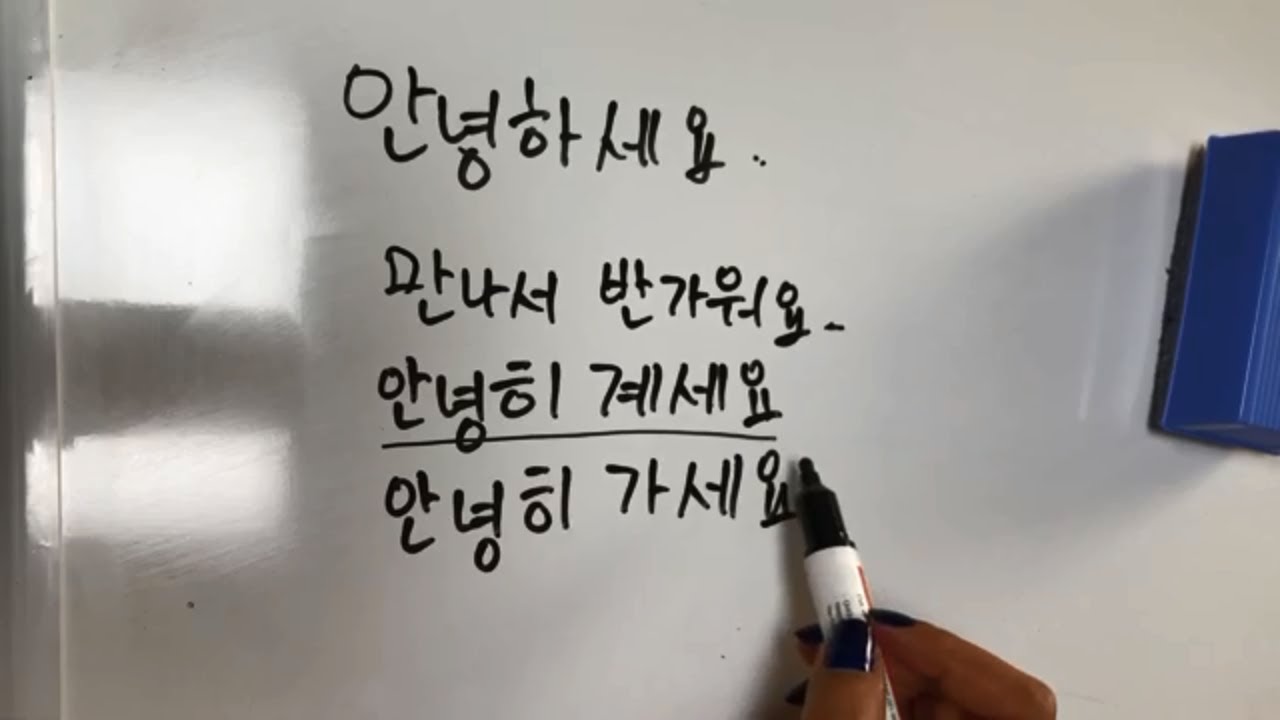 안녕하세요..
만나서 반가워요.
안녕히 계세요
안녕히 가세요